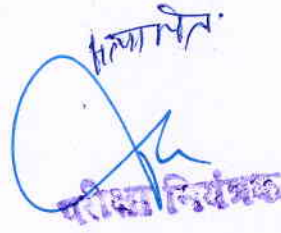 सत्यापित
परीक्षा नियंत्रक